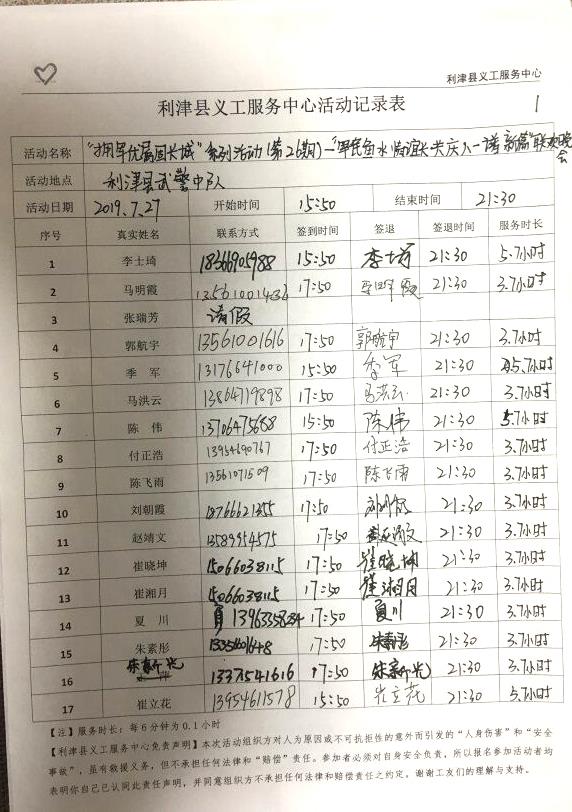 利津县义工服务中心
利津县义工服务中心活动记录表
1
活动名称 "拥军优属固长城"系列活动(第26期)—"军民鱼水情谊长 共庆八一谱新篇"联欢晚会
活动地点 利津县武警中队
活动日期 2019.7.27 开始时间 15:50 结束时间 21:30
序号 真实姓名 联系方式 签到时间 签退 签退时间 服务时长
1 李士琦 18366905988 15:50 李士琦 21:30 5.7小时
2 马明霞 13561001436 17:50 21:30 3.7小时
3 张瑞芳 请假
4 郭航宇 13561001616 17:50 郭航宇 21:30 3.7小时
5 季军 13176641000 15:50 季军 21:30 5.7小时
6 马洪云 13864719898 17:50 马洪云 21:30 3.7小时
7 陈伟 13706475688 15:50 陈伟 21:30 5.7小时
8 付正浩 13954690767 17:50 付正浩 21:30 3.7小时
9 陈飞雨 13561071509 17:50 陈飞雨 21:30 3.7小时
10 刘朝霞 18766621355 17:50 21:30 3.7小时
11 赵靖文 13589954575 17:50 21:30 3.7小时
12 崔晓坤 15066038115 17:50 崔晓坤 21:30 3.7小时
13 崔湘月 15066038115 17:50 崔湘月 21:30 3.7小时
14 夏川 17:50 夏川 21:30 3.7小时
15 朱素彤 17:50 朱素彤 21:30 3.7小时
16 朱新光 13371541616 17:50 朱新光 21:30 3.7小时
17 崔立花 13954611578 15:50 崔立花 21:30 5.7小时
【注】服务时长:每6分钟为0.1小时
【利津县义工服务中心免责声明】本次活动组织方对人为原因或不可抗拒性的意外而引发的"人身伤害"和"安全
事故",虽有救援义务,但不承担任何法律和"赔偿"责任。参加者必须对自身安全负责,所以报名参加活动者均
表明你自己已认同此责任声明,并同意组织方不承担任何法律和赔偿责任之约定。谢谢工友们的理解与支持。